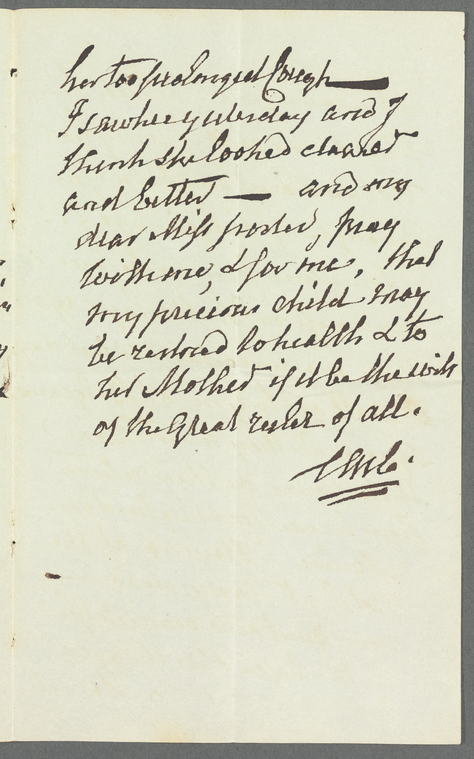 her too prolonged Cough —
I saw her yesterday and I
think she looked clearer
and better — and my
dear Miss Porter, pray
with me, & for me, that
my precious child may
be restored to health & to
her Mother if it be the will
of the Great ruler of all.